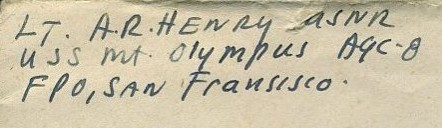 LT. A.R. HENRY USNR
USS Mt. Olympus AGC-8
FPO, SAN Fransisco.